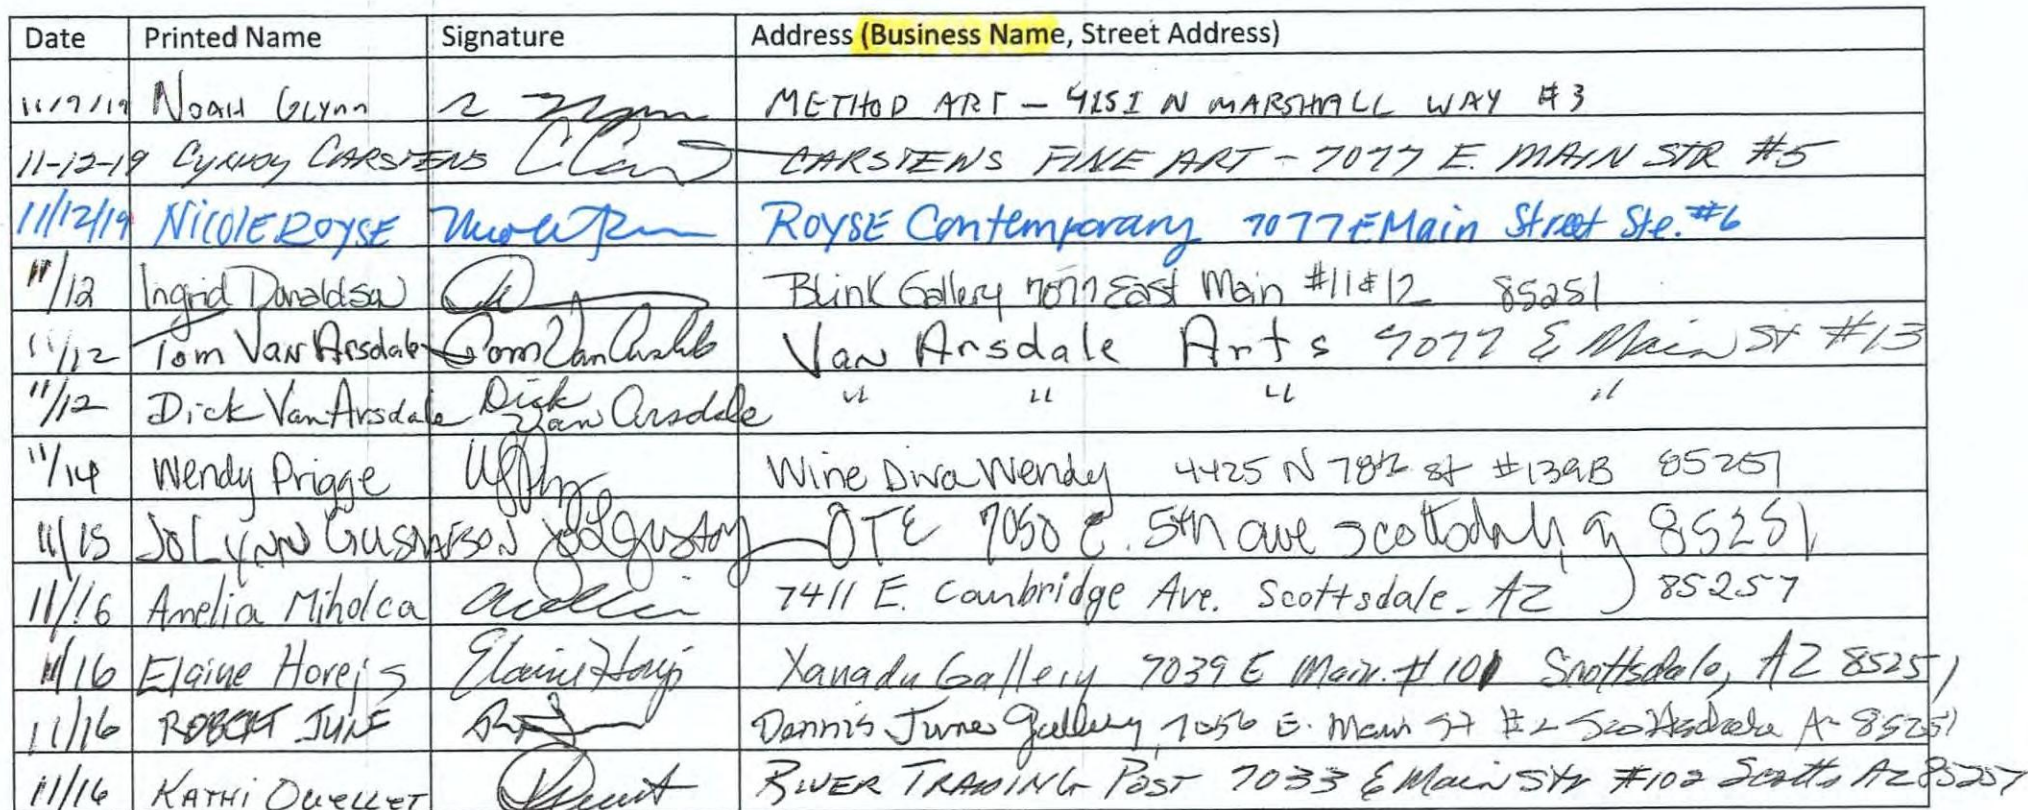 Date Printed Name Signature Address (Business Name, Street Address)
11/9/19 NOAH GLYNN METHOD ART - 4151 N MARSHALL WAY #3
11-12-19 CYNDY CARSTENS CARSTENS FINE ART - 7077 E. MAIN STR #5
11/12/19 NICOLE ROYSE ROYSE Contemporary 7077 E Main Street Ste. #6
11/12 Ingrid Donaldson Blink Gallery 7077 East Main #11 & 12 85251
11/12 Tom Van Arsdale Tom Van Arsdale Van Arsdale Arts 7077 E Main St #13
11/12 Dick Van Arsdale Dick Van Arsdale " " " "
11/14 Wendy Prigge Wine Diva Wendy 4425 N 78th st #139B 85251
11/15 JOLYNN GUSTAFSON OTE 7050 E. 5th ave scottsdale, az 85251
11/16 Amelia Miholca 7411 E. Cambridge Ave. Scottsdale, AZ 85257
11/16 Elaine Horejs Elaine Horejs Xanadu Gallery 7039 E Main #101 Scottsdale, AZ 85251
11/16 ROBERT JUNE Dennis June Gallery, 7056 E. Main St #2 Scottsdale Az 85251
11/16 KATHI OUELLET RIVER TRADING POST 7033 E Main Str #102 Scotts AZ 85257